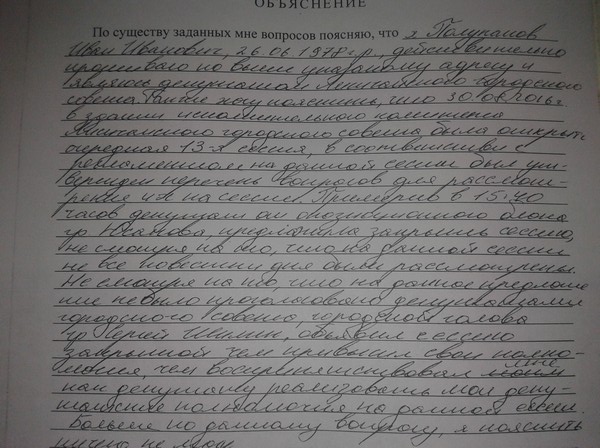 ОБЪЯСНЕНИЕ
По существу заданных мне вопросов поясняю, что я Полупанов
Иван Иванович, 26.06.1978 г.р., действительно
проживаю по выше указаному адресу и
являюсь депутатом Лисичанского городского
совета. Также хочу пояснить, что 30.08.2016 г
в здании исполнительного комитета
Лисичанского городского совета, была открыта
очередная 13-я сессия, в соответствии с
регламентом на данной сессии был ут-
вержден перечень вопросов для рассмот-
рения их на сессии. Примерно в 15:40
часов депутат от опозиционного блока
гр. предложила закрыть сессию,
не смотря на то, что на данной сессии
не все повестки дня были рассмотрены.
Не смотря на то, что на данное предложе
ние не было проголосовано депутатами
городского совета, городской голова
гр Сергей Шилин, объявил сессию
закрытой чем привысил свои полно-
мочия, чем воспрепятствовал мне
как депутату реализовать мои депу-
татские полномочия на данной сессии.
Больше по данному вопросу, я пояснить
ничего не могу